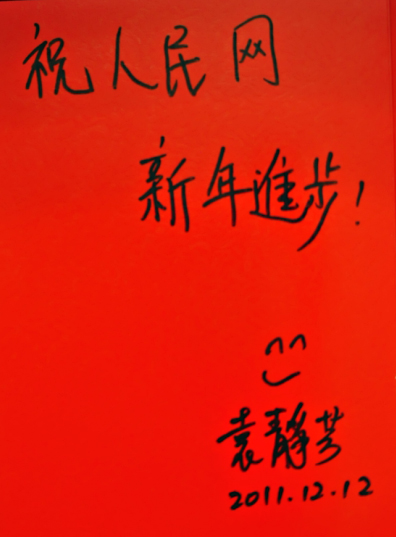 祝人民网
新年進步!
袁靜芳
2011.12.12